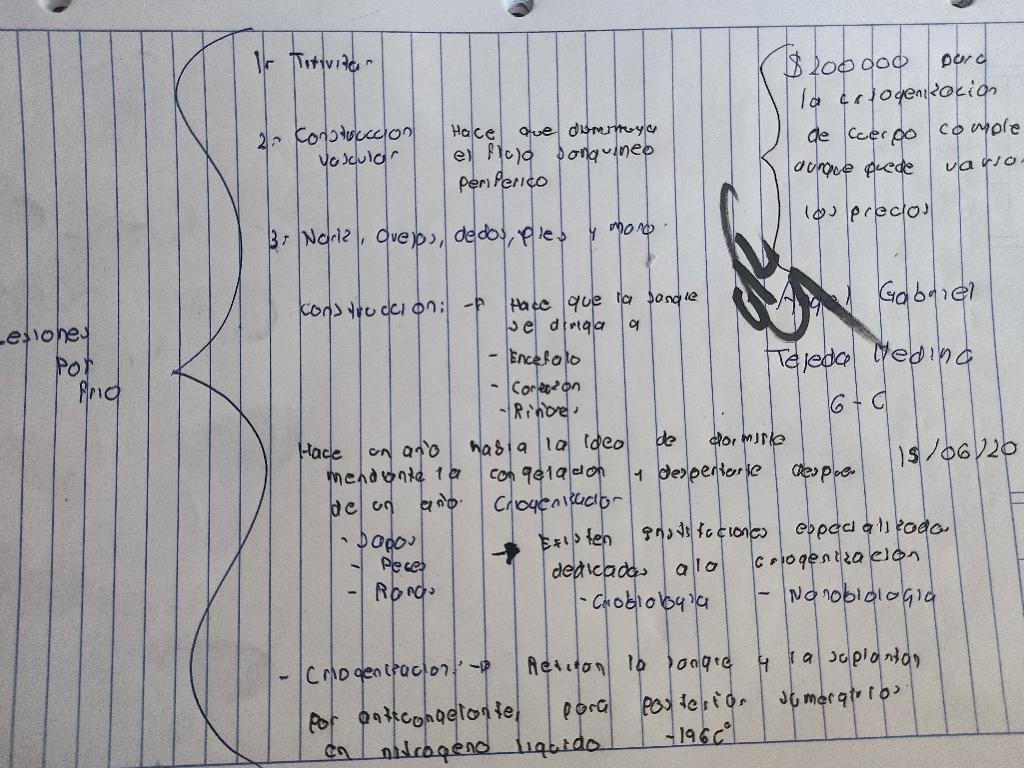 Lesiones
por
frio
1.- Tiritita-
2.- Construccion vascular
Hace que disminuya
el flujo sanguineo
periferico
3.- Nariz, orejas, dedos, pies y mano.
Construccion: -> Hace que la sangre
se dirija a
- Encefalo
- Corazon
- Riñones
Hace un año habia la idea de dormirte
mendiante la congelacion y despertarte despues
de un año. Criogenizacion
- Sapos
- Peces
- Ranas
-> Existen instituciones especializada
dedicadas a la criogenizacion
- Criobiologia - Nanobiologia
- Criogenizacion: -> Retiran la sangre y la suplantan
por anticongelante, para posterior sumergirlos
en nitrogeno liquido -196C°
$200000 para
la criogenizacion
de cuerpo comple
aunque puede varia
los precios
Angel Gabriel
Tejeda Medina
6-C
15/06/20